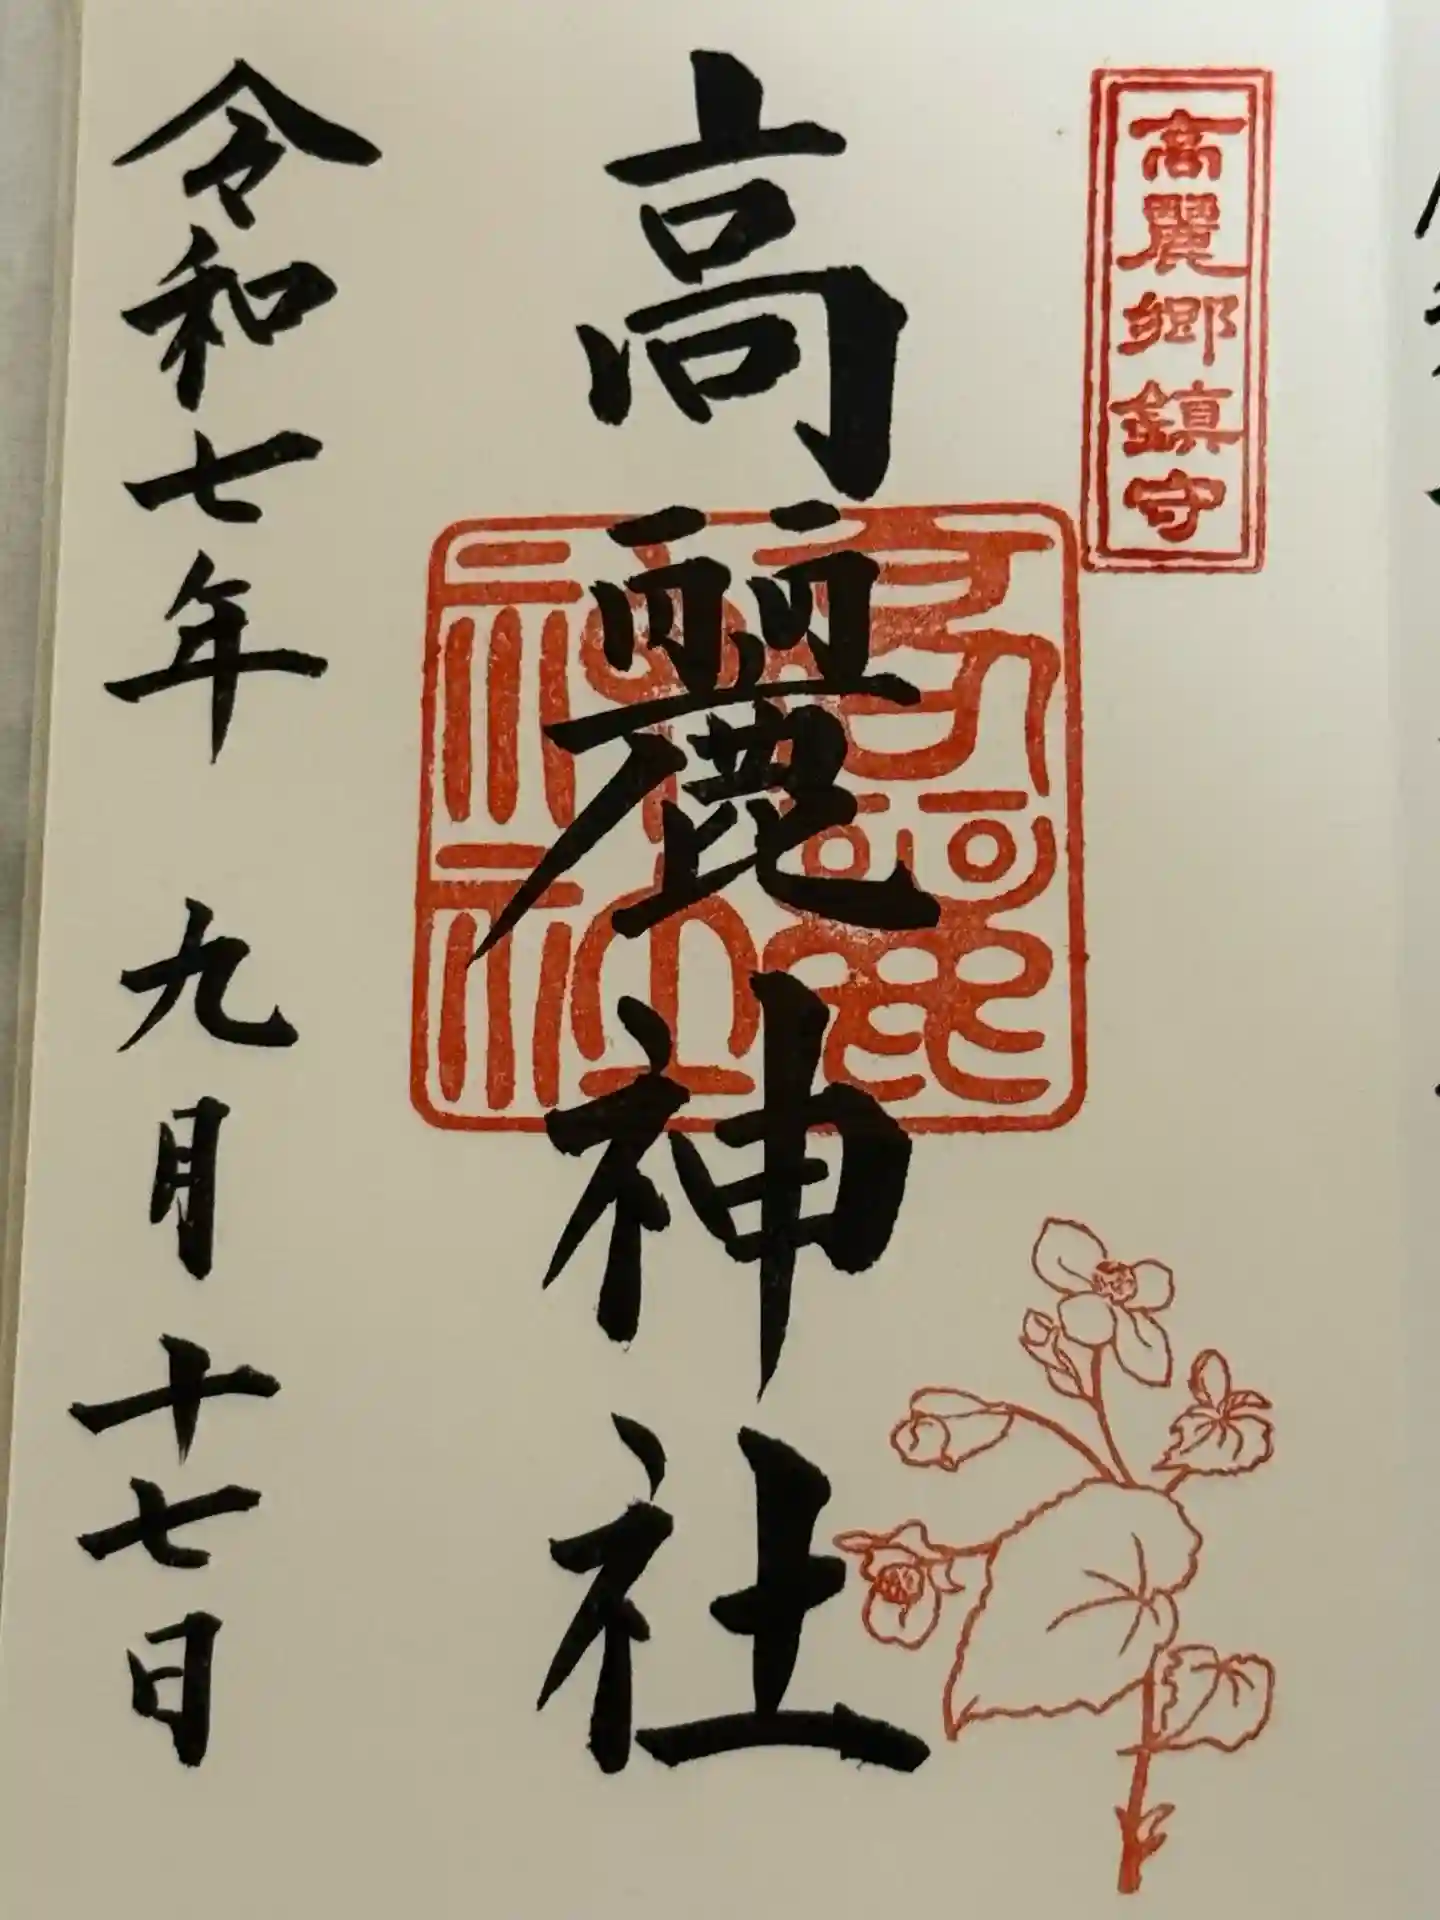 高麗郷鎮守
高麗神社
令和七年 九月十七日